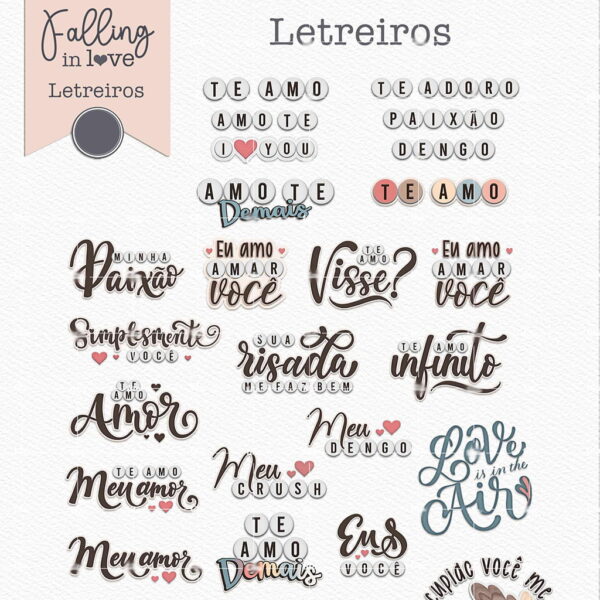 Falling
in love
Letreiros
Letreiros
TE AMO
AMO TE
I YOU
AMO TE
Demais
TE ADORO
PAIXÃO
DENGO
TE AMO
MINHA
Paixão
Eu amo
AMAR
você
TE
AMO
Visse?
Eu amo
AMAR
você
Simplesmente
VOCÊ
SUA
risada
ME FAZ BEM
TE AMO
infinito
TE
AMO
Amor
Meu
DENGO
TE AMO
Meu amor
Meu
CRUSH
Love
is in the
Air
Meu amor
TE
AMO
Demais
Eu s
VOCÊ
cupido você me